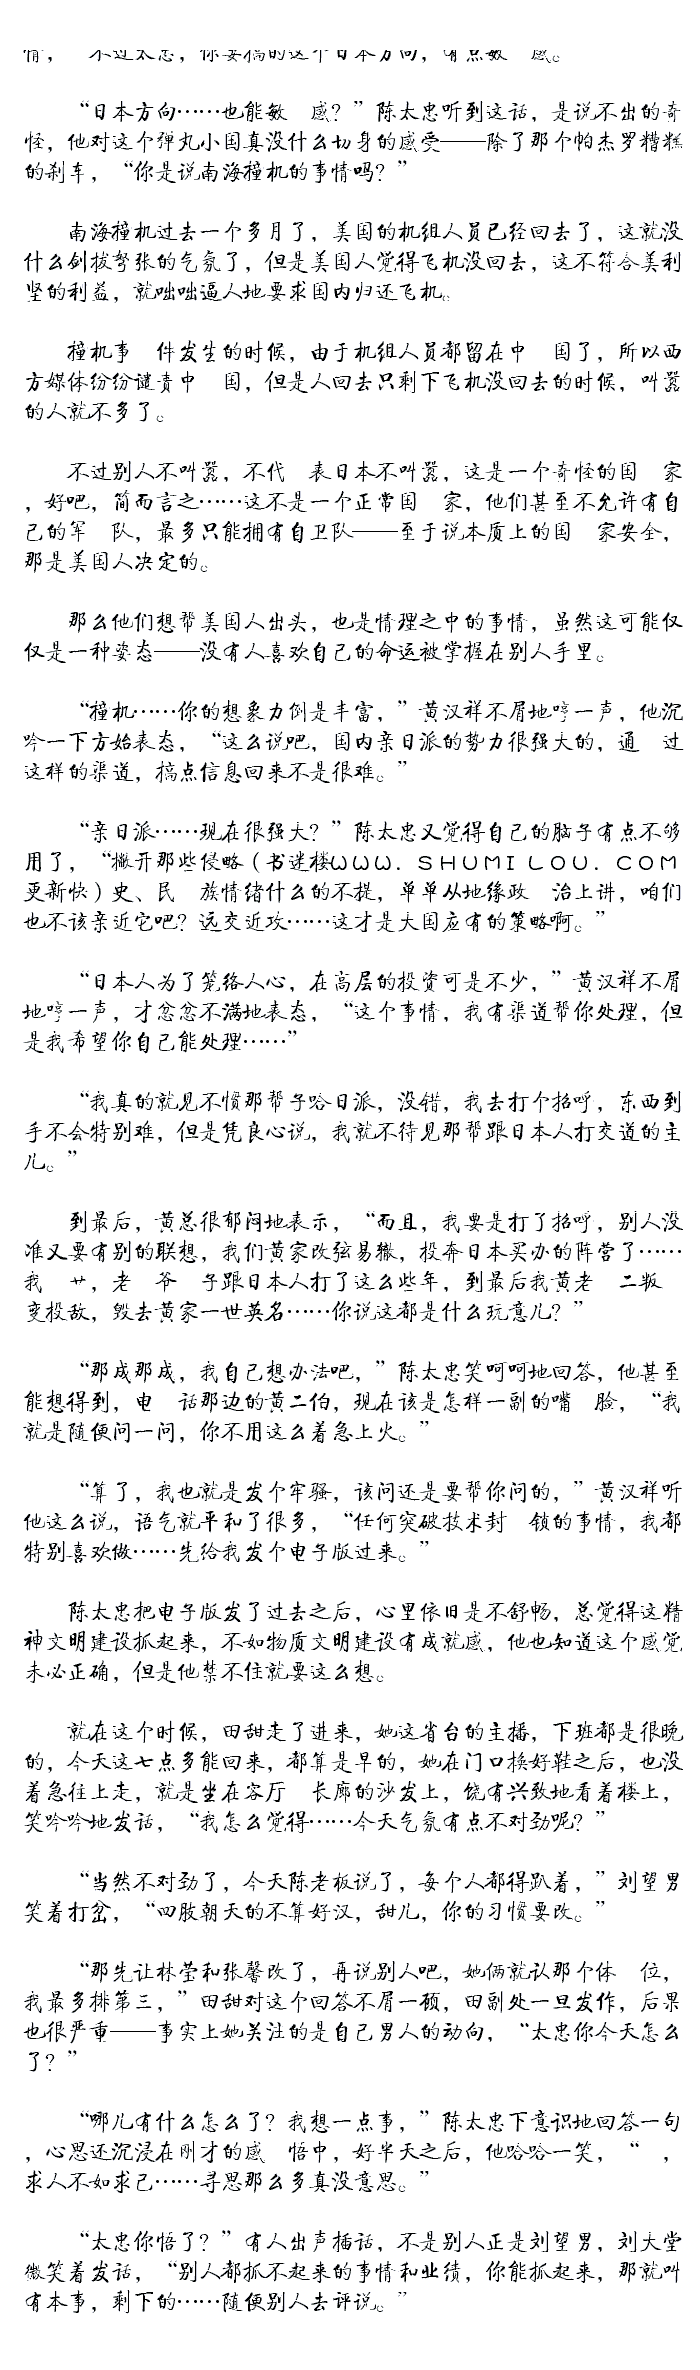 情，　不过太忠，你要搞的这个日本方向，有点敏　感。
“日本方向……也能敏　感？”陈太忠听到这话，是说不出的奇
怪，他对这个弹丸小国真没什么切身的感受——除了那个帕杰罗糟糕
的刹车，“你是说南海撞机的事情吗？”
南海撞机过去一个多月了，美国的机组人员已经回去了，这就没
什么剑拔弩张的气氛了，但是美国人觉得飞机没回去，这不符合美利
坚的利益，就咄咄逼人地要求国内归还飞机。
撞机事　件发生的时候，由于机组人员都留在中　国了，所以西
方媒体纷纷谴责中　国，但是人回去只剩下飞机没回去的时候，叫嚣
的人就不多了。
不过别人不叫嚣，不代　表日本不叫嚣，这是一个奇怪的国　家
，好吧，简而言之……这不是一个正常国　家，他们甚至不允许有自
己的军　队，最多只能拥有自卫队——至于说本质上的国　家安全，
那是美国人决定的。
那么他们想帮美国人出头，也是情理之中的事情，虽然这可能仅
仅是一种姿态——没有人喜欢自己的命运被掌握在别人手里。
“撞机……你的想象力倒是丰富，”黄汉祥不屑地哼一声，他沉
吟一下方始表态，“这么说吧，国内亲日派的势力很强大的，通　过
这样的渠道，搞点信息回来不是很难。”
“亲日派……现在很强大？”陈太忠又觉得自己的脑子有点不够
用了，“撇开那些侵略（书迷楼ＷＷＷ．ＳＨＵＭＩＬＯＵ．ＣＯＭ
更新快）史、民　族情绪什么的不提，单单从地缘政　治上讲，咱们
也不该亲近它吧？远交近攻……这才是大国应有的策略啊。”
“日本人为了笼络人心，在高层的投资可是不少，”黄汉祥不屑
地哼一声，才忿忿不满地表态，“这个事情，我有渠道帮你处理，但
是我希望你自己能处理……”
“我真的就见不惯那帮子哈日派，没错，我去打个招呼，东西到
手不会特别难，但是凭良心说，我就不待见那帮跟日本人打交道的主
儿。”
到最后，黄总很郁闷地表示，“而且，我要是打了招呼，别人没
准又要有别的联想，我们黄家改弦易辙，投奔日本买办的阵营了……
我　艹，老　爷　子跟日本人打了这么些年，到最后我黄老　二叛
变投敌，毁去黄家一世英名……你说这都是什么玩意儿？”
“那成那成，我自己想办法吧，”陈太忠笑呵呵地回答，他甚至
能想得到，电　话那边的黄二伯，现在该是怎样一副的嘴　脸，“我
就是随便问一问，你不用这么着急上火。”
“算了，我也就是发个牢骚，该问还是要帮你问的，”黄汉祥听
他这么说，语气就平和了很多，“任何突破技术封　锁的事情，我都
特别喜欢做……先给我发个电子版过来。”
陈太忠把电子版发了过去之后，心里依旧是不舒畅，总觉得这精
神文明建设抓起来，不如物质文明建设有成就感，他也知道这个感觉
未必正确，但是他禁不住就要这么想。
就在这个时候，田甜走了进来，她这省台的主播，下班都是很晚
的，今天这七点多能回来，都算是早的，她在门口换好鞋之后，也没
着急往上走，就是坐在客厅　长廊的沙发上，饶有兴致地看着楼上，
笑吟吟地发话，“我怎么觉得……今天气氛有点不对劲呢？”
“当然不对劲了，今天陈老板说了，每个人都得趴着，”刘望男
笑着打岔，“四肢朝天的不算好汉，甜儿，你的习惯要改。”
“那先让林莹和张馨改了，再说别人吧，她俩就认那个体　位，
我最多排第三，”田甜对这个回答不屑一顾，田副处一旦发作，后果
也很严重——事实上她关注的是自己男人的动向，“太忠你今天怎么
了？”
“哪儿有什么怎么了？我想一点事，”陈太忠下意识地回答一句
，心思还沉浸在刚才的感　悟中，好半天之后，他哈哈一笑，“　，
求人不如求己……寻思那么多真没意思。”
“太忠你悟了？”有人出声插话，不是别人正是刘望男，刘大堂
微笑着发话，“别人都抓不起来的事情和业绩，你能抓起来，那就叫
有本事，剩下的……随便别人去评说。”